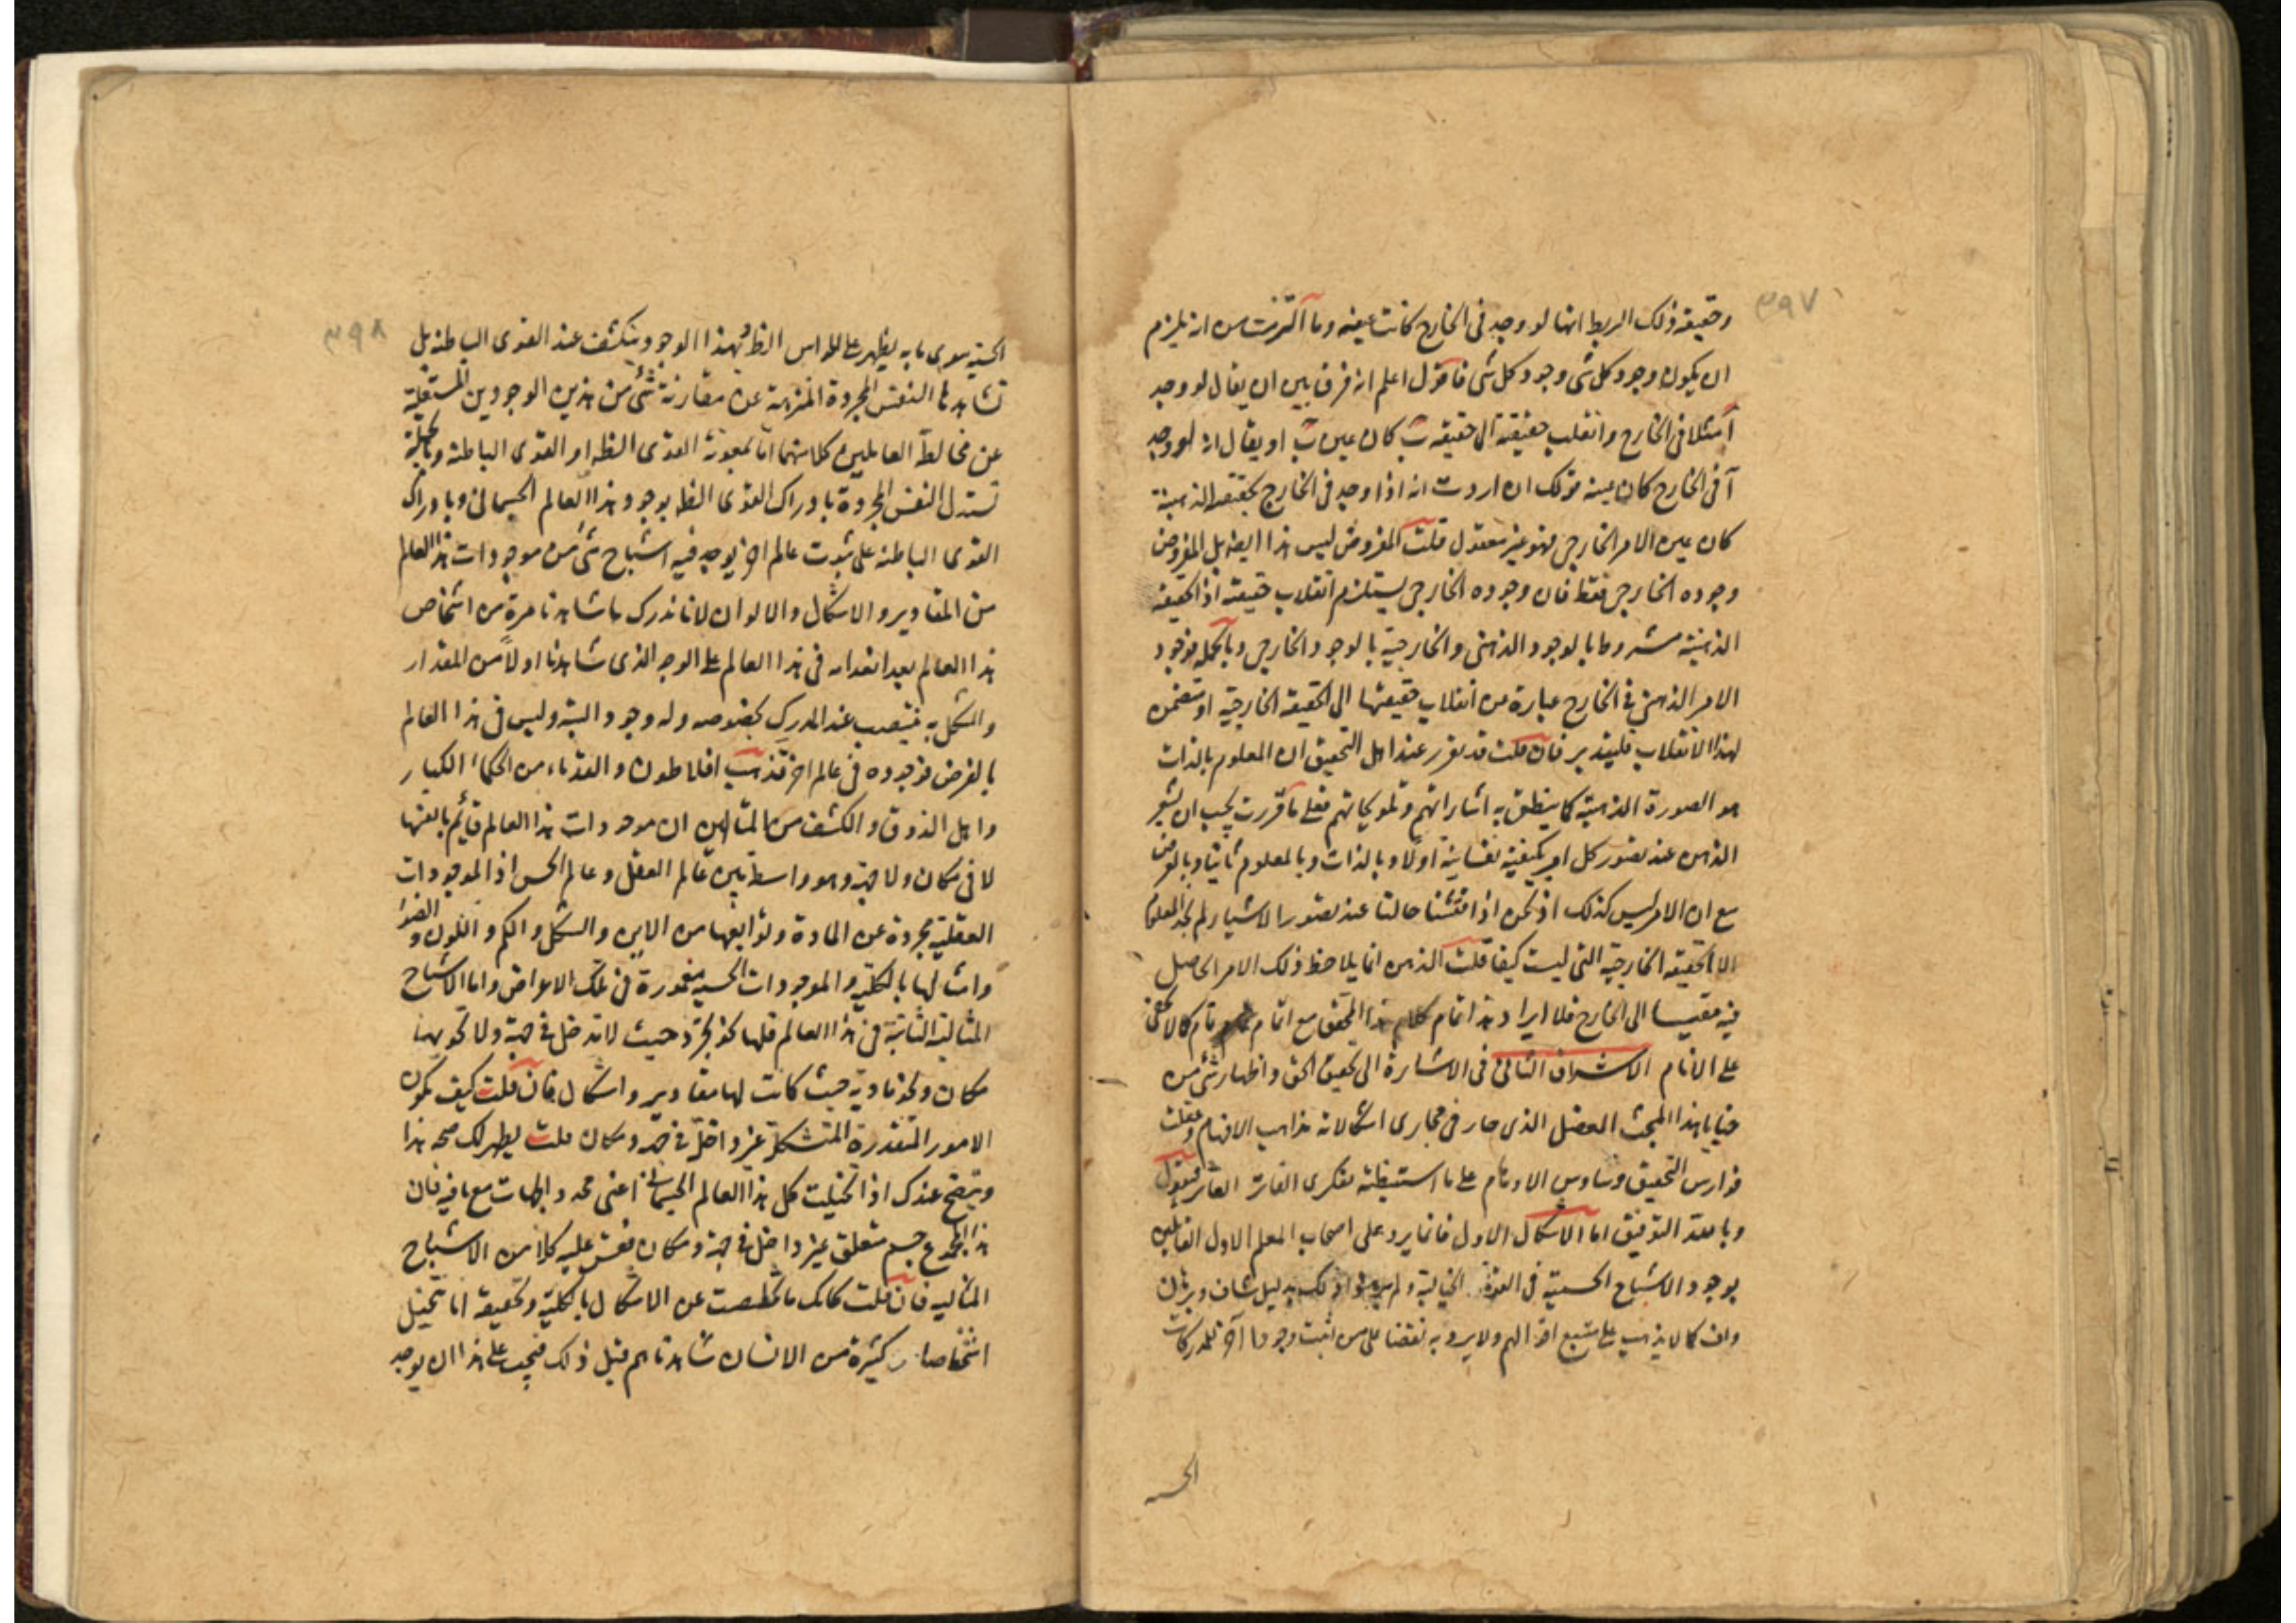 ٣٩٧
وحقيقة ذلك الربط انها لو وجد فى الخارج كانت عينه وما آلتزمت من انه يلزم
ان يكون وجود كل شى وجود كل شى فاقول اعلم انه فرق بين ان يقال لو وجد
آ مثلا فى الخارج وانقلب حقيقته الى حقيقة ب كان عين ب او يقال انه لو وجد
آ فى الخارج كان عينه قولك ان اردت انه اذا وجد فى الخارج بحقيقته الذهنية
كان عين الامر الخارجى فهو غير معقول قلت المفروض ليس هذا ايضا بل المفروض
وجوده الخارجى فقط فان وجوده الخارجى يستلزم انقلاب حقيقته اذ الحقيقة
الذهنية مشروطا بالوجود الذهنى والخارجية بالوجود الخارجى وبالجملة فوجود
الامر الذهنى فى الخارج عبارة من انقلاب حقيقتها الى الحقيقة الخارجية او متضمن
لهذا الانقلاب فليتدبر فان قلت قد تقرر عند اهل التحقيق ان المعلوم بالذات
هو الصورة الذهنية كما ينطق به اشاراتهم وتلويحاتهم فعلى ما قررت يجب ان يشعر
الذهن عند تصور كل امر بكيفية نفسانية اولا وبالذات وبالمعلوم ثانيا وبالعرض
مع ان الامر ليس كذلك اذ نحن اذا فتشنا حالنا عند تصور الاشياء لم نجد المعلوم
الا الحقيقة الخارجية التى ليست كيفا قلت الذهن انما يلاحظ ذلك الامر الحاصل
فيه مقيسا الى الخارج فلا ايراد هذا تمام كلام هذا المحقق مع اتمام تام كما لا يخفى
على الانام الاشراق الثانى فى الاشارة الى تحقيق الحق واظهار شئ من
خبايا هذا المبحث المعضل الذى حار فى مجارى اشكالاته مذاهب الافهام وقلت
فوارس التحقيق وساوس الاوهام على ما استنبطته بفكرى الفاتر القاصر فنقول
وبالله التوفيق اما الاشكال الاول فانما يرد على اصحاب المعلم الاول القائلين
بوجود الاشباح الحسية فى القوة الخيالية ولم ذلك بدليل شاف وبرهان
واف كما لا يذهب على متتبع اقوالهم ولا يرد به نقضا على من اثبت وجودا آخر للمدركات
الحسيه
٣٩٨
الحسية سوى ما به يظهر على الحواس الظ بهذا الوجود وينكشف عند القوى الباطنة بل
تشاهدها النفس المجردة المنزهة عن مقارنة شئ من هذين الوجودين المستعلية
عن مخالطة العالمين كلاهما اما بمعونة القوى الظ او القوى الباطنة وبالجملة
تستدل النفس المجردة بادراك القوى الظ بوجود هذا العالم الجسمانى وبادراك
القوى الباطنة على ثبوت عالم اخر يوجد فيه اشباح شئ من موجودات هذا العالم
من المقادير والاشكال والالوان لانا ندرك ما شاهدنا مرة من اشخاص
هذا العالم بعد انعدامه فى هذا العالم على الوجه الذى شاهدنا اولا من المقدار
والشكل به فينتصب عند المدرك بخصوصه وله وجود البتة وليس فى هذا العالم
بالفرض فوجوده فى عالم اخر فذهب افلاطون والقدماء من الحكماء الكبار
واهل الذوق والكشف من المتالهين ان موجودات هذا العالم قائم بانفسها
لا فى مكان ولا جهة وهو واسطة بين عالم العقل وعالم الحس اذ الموجودات
العقلية مجردة عن المادة وتوابعها من الاين والشكل والكم واللون والضوء
وامثالها بالكلية والموجودات الحسية مغمورة فى تلك الاعراض واما الاشباح
المثالية الثابتة فى هذا العالم فلها نحو تجرد حيث لا تدخل فى جهة ولا تحويها
مكان ونحو مادية حيث كانت لها مقادير واشكال فان قلت كيف يكون
الامور المتقدرة المتشكلة غير داخل فى جهة ومكان قلت يظهر لك صحة هذا
ويتضح عندك اذا تخيلت كل هذا العالم الجسمانى اعنى محدد الجهات مع ما فيه فان
هذا المجموع جسم متعلق غير داخل فى جهة ومكان فقس عليه كلا من الاشباح
المثالية فان قلت كانك ما تخلصت عن الاشكال بالكلية وتحقيقه انا نتخيل
اشخاصا كثيرة من الانسان شاهدناهم قبل ذلك فيجب على هذا ان يوجد